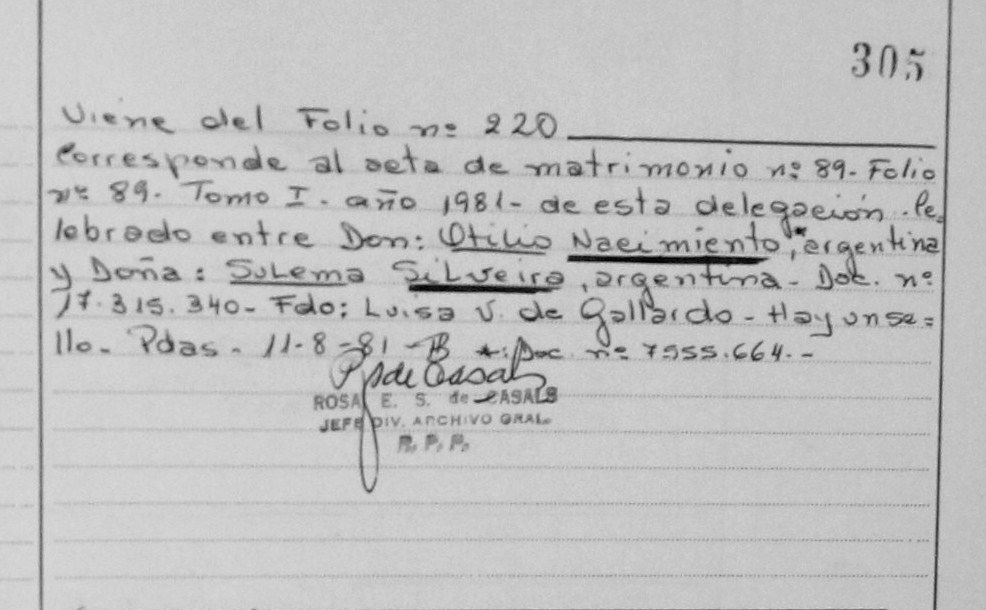 305
Viene del Folio nº 220
Corresponde al acta de matrimonio nº 89- Folio
nº 89- Tomo I - año 1981- de esta delegación. Ce=
lebrado entre Don: Otilio Nacimiento,* argentina
y Doña: Sulema Silveira, argentina- Doc. nº
17.315.340- Fdo: Luisa V. de Gallardo - Hay un se=
llo- Pdas- 11-8-81 - *: Doc. nº 7555.664.-
ROSA E. S. de CASALS
JEFE DIV. ARCHIVO GRAL.
R. P. P.